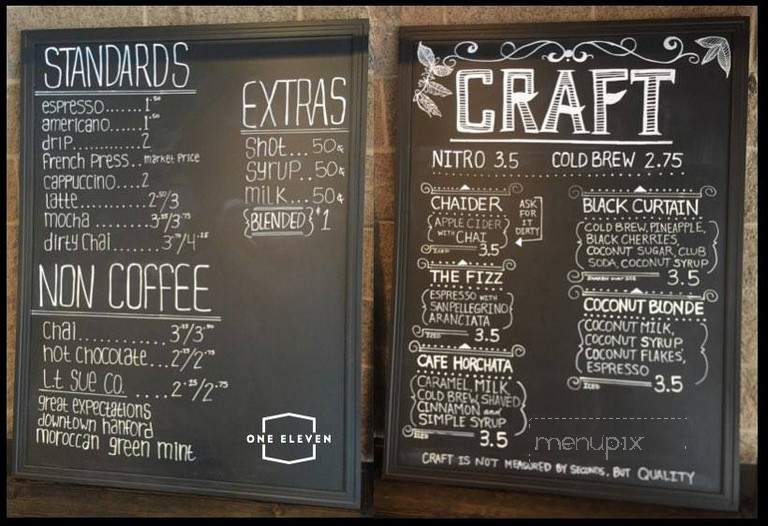 STANDARDS
espresso.......1.50
americano......1.50
drip...........2
french press..market price
cappuccino....2
latte..........2.50/3
mocha
dirty chai
NON COFFEE
chai
hot chocolate
L.t. Sue Co.
great expectations
downtown hanford
moroccan green mint
EXTRAS
Shot...50¢
Syrup..50¢
milk...50¢
{BLENDED} $1
ONE ELEVEN
CRAFT
NITRO 3.5 COLD BREW 2.75
CHAIDER
APPLE CIDER
WITH CHAI
ICED 3.5
ASK
FOR
IT
DIRTY
THE FIZZ
ESPRESSO WITH
SANPELLEGRINO
ARANCIATA
ICED 3.5
CAFE HORCHATA
CARAMEL, MILK,
COLD BREW, SHAVED
CINNAMON and
SIMPLE SYRUP
ICED 3.5
BLACK CURTAIN
COLD BREW, PINEAPPLE,
BLACK CHERRIES,
COCONUT SUGAR, CLUB
SODA, COCONUT SYRUP
3.5
COCONUT BLONDE
COCONUT MILK,
COCONUT SYRUP
COCONUT FLAKES,
ESPRESSO
ICED 3.5
menupix
CRAFT IS NOT MEASURED BY SECONDS, BUT QUALITY